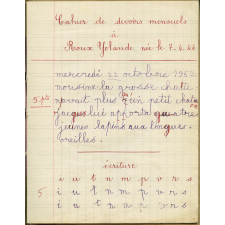 Cahier de devoirs mensuels
à
Roux Yolande née le 7.4.44
mercredi 22 octobre 1952
nousine la grosse chatte
5 pts n'avait plus qu'un petit chaton
Jacques lui apporta quatre
jeunes lapins aux longues
oreilles.
écriture
i u t n m p v r s
5 i u t n m p v r s
i u t n m p v r s